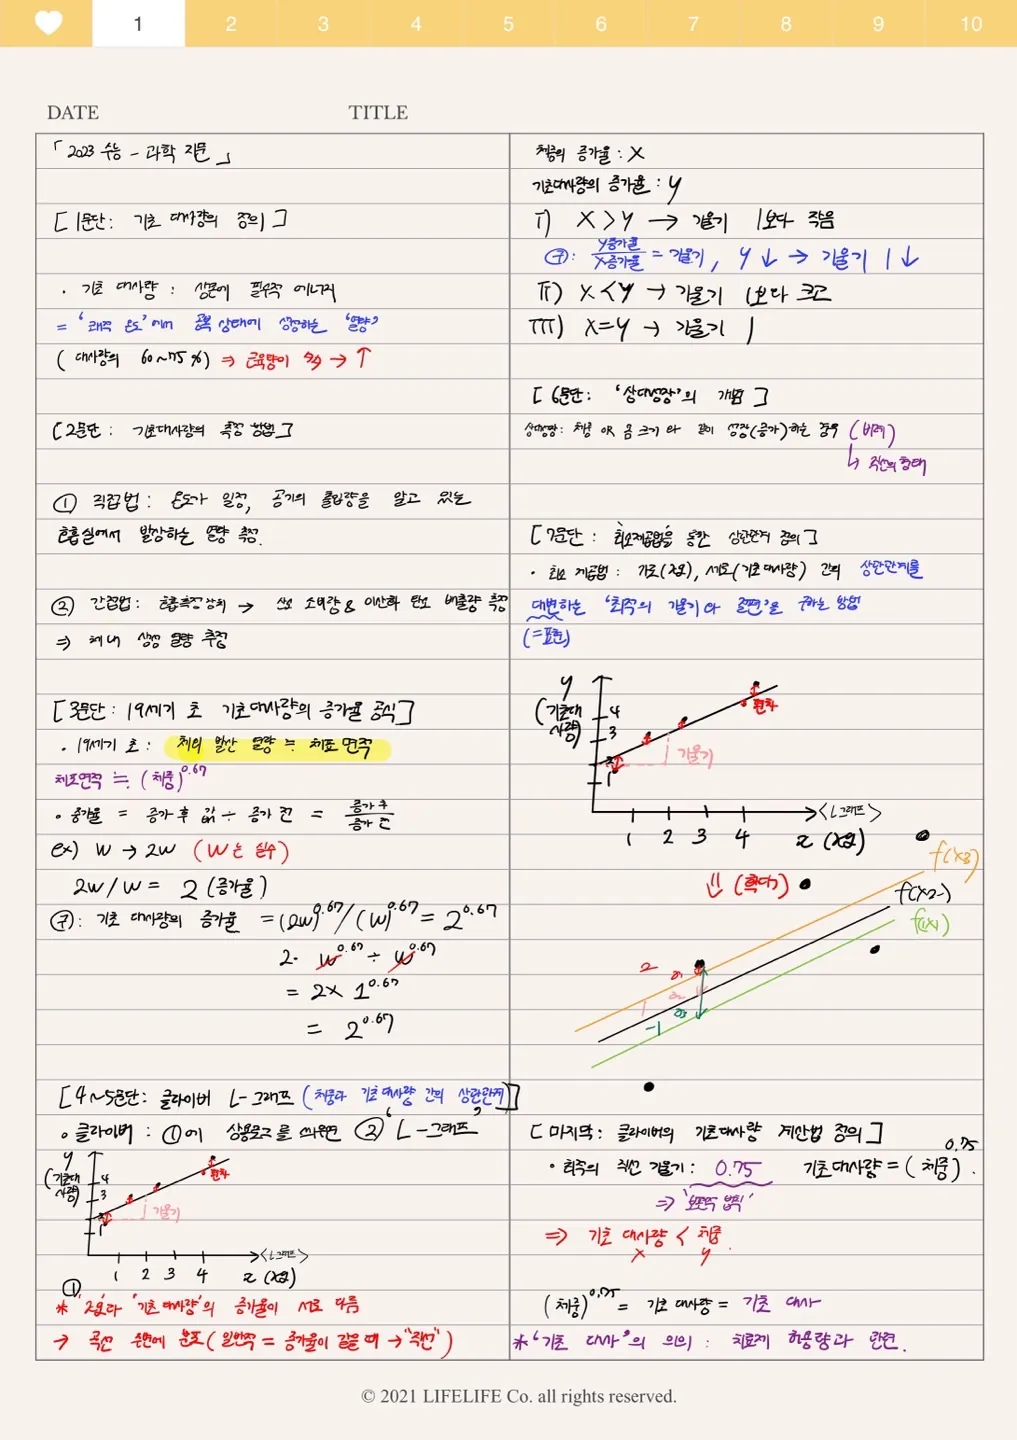 1 2 3 4 5 6 7 8 9 10
DATE TITLE
「2023 수능 - 과학 지문」
[1문단: 기초 대사량의 정의]
· 기초 대사량 : 생존에 필수적 에너지
= '쾌적 온도'에서 공복 상태에 생성하는 '열량'
( 대사량의 60~75 %) ⇒ 근육량이 → ↑
[2문단 : 기초대사량의 측정 방법]
① 직접법 : 온도가 일정, 공기의 출입량을 알고 있는
호흡실에서 발산하는 열량 측정.
② 간접법: 호흡측정 장치 → 산소 소비량 & 이산화 탄소 배출량 측정
⇒ 체내 생성 열량 추정
[3문단: 19세기 초 기초대사량의 증가율 공식]
· 19세기 초 : 체외 발산 열량 ≒ 체표 면적
체표면적 ≒ (체중)^0.67
· 증가율 = 증가 후 값 ÷ 증가 전 = 증가 후 / 증가 전
ex) W → 2W (W는 실수)
2W / W = 2 (증가율)
: 기초 대사량의 증가율 = (2W)^0.67 / (W)^0.67 = 2^0.67
2 · W^0.67 ÷ W^0.67
= 2 × 1^0.67
= 2^0.67
[4~5문단: 클라이버 L-그래프 (체중과 기초대사량 간의 상관관계)]
· 클라이버 : ①에 상용로그를 씌우면 ② 'L-그래프'
y
(기초대
사량)
4
3
1
편차
기울기
<L그래프>
1 2 3 4 x (체중)
①
* '체중'과 '기초 대사량'의 증가율이 서로 다름
→ 곡선 주변에 분포 (일반적 = 증가율이 같을 때 → "직선")
체중의 증가율 : X
기초대사량의 증가율 : y
I) X > y → 기울기 1보다 작음
: y증가율 / X증가율 = 기울기, y ↓ → 기울기 1 ↓
II) X < y → 기울기 1보다 크고
III) X = y → 기울기 1
[6문단: '상대성장'의 개념]
상대성장: 체중 OR 몸 크기와 같이 성장(증가)하는 경우 (비례)
↳ 직선의 형태
[7문단 : '최소제곱법'을 통한 상관관계 정의]
· 최소 제곱법 : 가로(체중), 세로(기초대사량) 간의 상관관계를
대변하는 '최적의 기울기와 절편'을 구하는 방법
(=표현)
y
(기초대
사량)
4
3
1
편차
기울기
<L그래프>
1 2 3 4 x (체중)
⇓ (확대)
f(x3)
f(x2)
f(x1)
2
1
-1
[마지막: 클라이버의 기초대사량 계산법 정의]
· 최적의 직선 기울기 : 0.75 기초대사량 = (체중)^0.75.
⇒ '보편적 법칙'
⇒ 기초 대사량 < 체중.
x y
(체중)^0.75 = 기초 대사량 = 기초 대사
* '기초 대사'의 의의 : 치료제 허용량과 관련.
© 2021 LIFELIFE Co. all rights reserved.